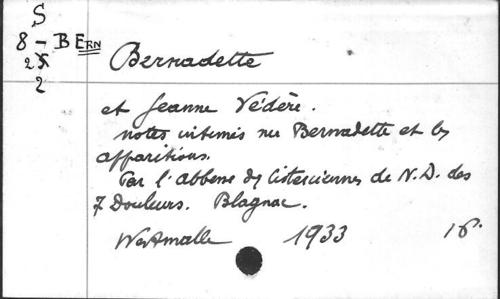 S
8 - B ERN
25
2
Bernadette
et Jeanne Védère.
notes intimes sur Bernadette et les
apparitions.
Par l'abbesse des Cisterciennes de N.D. des
7 Douleurs. Blagnac.
Westmalle 1933 16°.